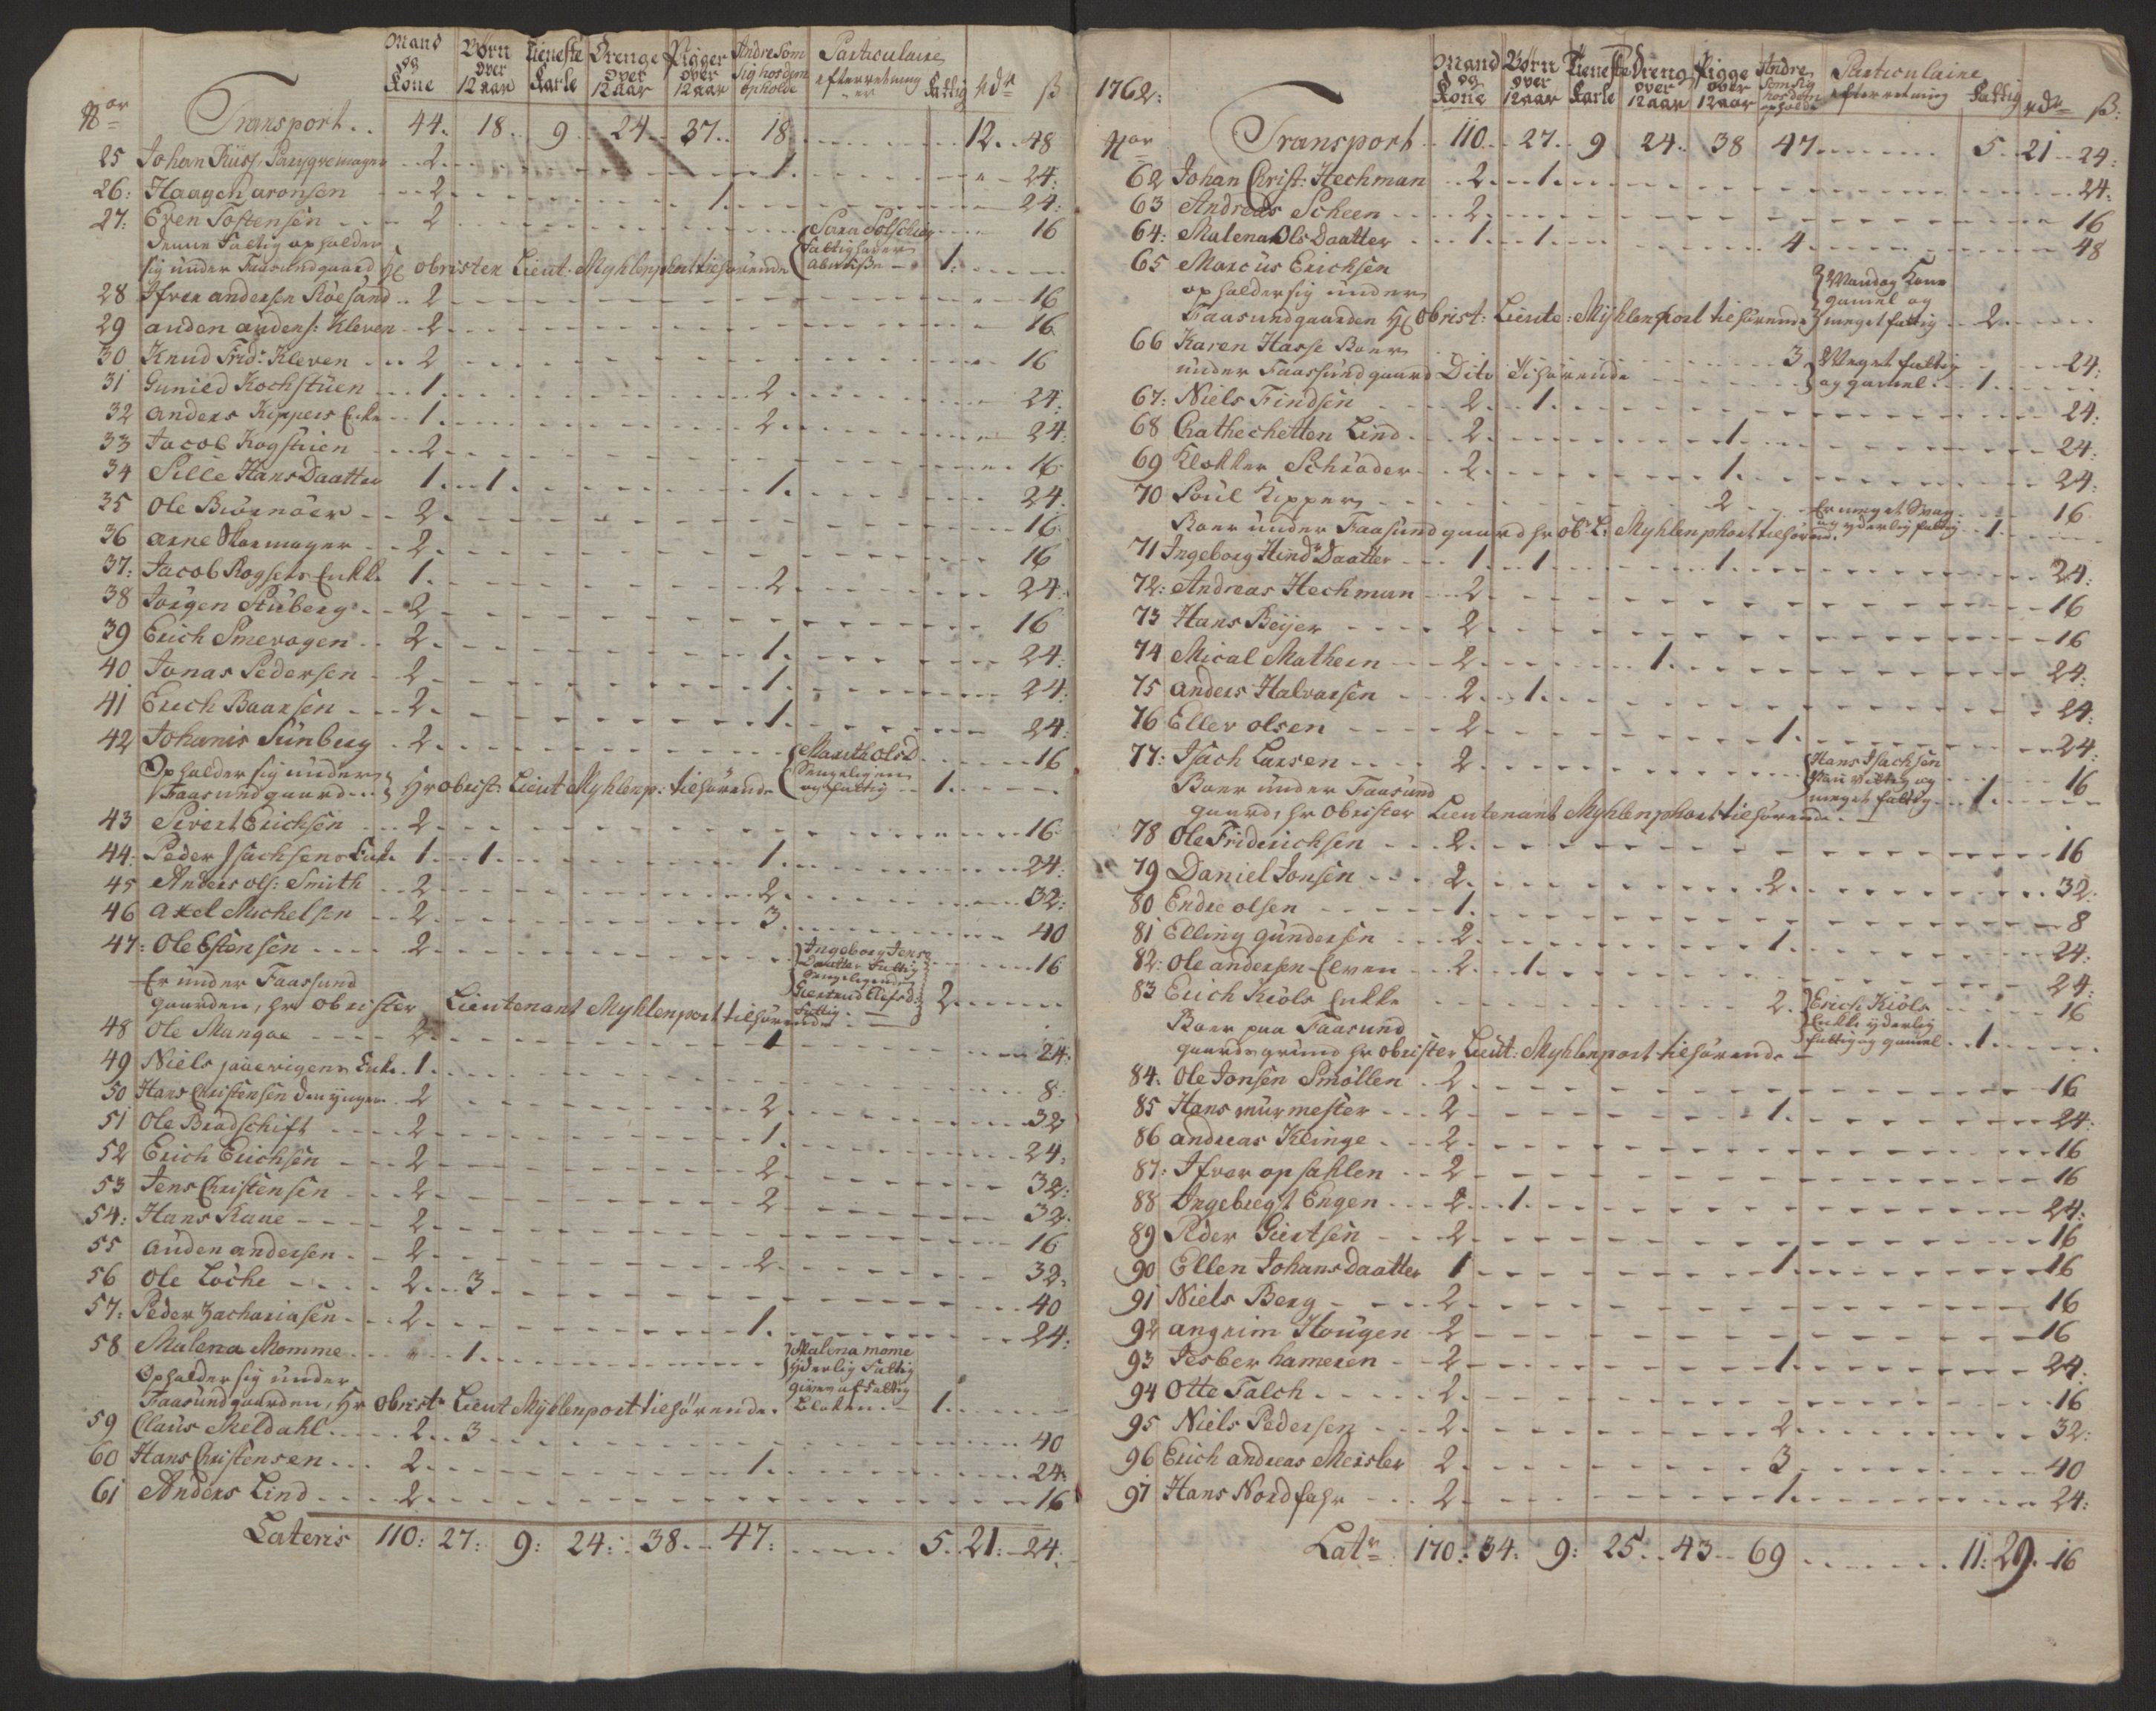 Mand og Kone | Børn over 12 aar | Tieneste Karle | Drenge over 12 aar | Piger over 12 aar | Andre som sig hos dem opholde | Particulaire efterretning er | Fattig | rdr | ß
Nor Transport . . 44. 18. 9. 24. 37. 18. 12. 48
25 Johan Riis, 2. 1. 24:
26: Haagen aronsen 2. 1. 24:
27: Even Tostensen 2 16
Denne Fattig opholder
sig under Faasundgaard Hr obrister Lieut. Myhlenphort tilhørende 1.
28 Ifver andersen Röesand 2 16
29 auden andens: Kleven 2. 16
30 Knud Frid: Kleven 2 16
31 Gunild Kochstüen 1. 2. 24:
32 anders Kippers Enke 1. 2. 24.
33 Jacob Kogstüen 2. 16
34 Sille Hans Daatter 1. 1. 1. 24.
35 Ole Biörnöer 2. 16.
36 arne 2. 16
37: Jacob Rogsets Enkke 1. 2. 24.
38 Jörgen Stüberg 2 16
39 Erich Smevogen 2. 1. 24:
40 Jonas Pedersen 2 1. 24.
41 Erich Baarsen 2. 1. 24:
42 Johanis Sünberg 2. Marith Olsd. 16
Opholder sig under Sengeligen
Faasundgaard Hr obrist: Lieut Myhlenp: tilhørende og fattig 1.
43 Sivert Erichsen 2. 16.
44. Peder Isachsens Enk. 1. 1. 1. 24.
45 Anders ols: Smith 2 2. 32:
46 axel Michelsen 2. 3. 40
47: Ole Estensen 2. Ingeborg Jens 16
Er under Faassund Daatter Fattig Sengeliggende
gaarden, hr obrister Lieutenant Myhlenport tilhørende Giertrud Fattig 2.
48 Ole Mangae 2. 1 24.
49 Niels Enke. 1. 8.
50 Hans Christensen den yngre 2 2. 32
51 Ole Brödschift 2. 1. 24.
52 Erich Erichsen 2 2. 32.
53 Jens Christensen 2. 2 32.
54: Hans Raue 2. 16
55 auden andersen 2. 2. 32.
56 Ole Löche 2. 3. 40
57: Peder Zachariasen 2. 1. 24.
58 Malena Momme 1. Malena mome
Opholder sig under yderlig Fattig
Faasundgaarden, Hr obristr Lieut Myhlenport tilhørende. 1.
59 Claus Meldahl 2. 3. 40
60 Hans Christensen 2. 1. 24.
61 Anders Lind 2. 16
Lateris 110: 27: 9: 24: 38. 47: 5. 21. 24.
1762:
Mand og Kone | Børn over 12 aar | Tieneste Karle | Dreng over 12 aar | Pige over 12 aar | Andre som sig hos dem opholde | Particulaire efterretning | Fattig | rdr | ß:
Nor Transport 110. 27. 9 24. 38 47. 5. 21. 24:
62 Johan Christ. Hechman 2. 1. 24:
63 Andreas Scheen 2. 16
64: Malena Ols Daatter 1. 1. 4. 48
65 Marcus Erichsen
opholder sig under Mand og Kone gamel og
Faasundgaarden Hr Obrist: Lieute: Myhlenport tilhørende meget fattig 2.
66 Karen Hasse Boer 3 Meget fattig 24:
under Faassundgaard Dito tilhørende og gamel 1.
67: Niels Findsen 2. 1. 24:
68 Cathechetten Lind 2. 1. 24:
69 Klokker Schrøder 2. 1. 24:
70 Poül Kipper 2. Er meget Svag 16
Boer under Faasund gaard hr ob. L: Myhlenphort tilhørend. og yderlig fattig 1.
71 Ingeborg Hindr Daatter 1. 1. 1. 24:
72: Andreas Hechman 2. 16
73 Hans Beijer 2. 16
74 Mical Mathern 2. 1. 24:
75 anders Halvorsen 2. 1. 24.
76 Eller olsen 2. 1. 24:
77: Isach Larsen 2. Hans Isachsen 16
Boer under Faasund og
gaard, hr Obrister Lieutenant Myhlenphort tilhørende. meget fattig 1.
78 Ole Friderichsen 2. 16
79 Daniel Jonsen 2. 2. 32:
80 Endre olsen 1. 8
81 Elling Gundersen 2. 1. 24.
82: Ole andersen Elven 2. 1. 24.
83 Erich Kiöls Enkke 2. Erich Kiöls 16
Boer paa Faasund Enkke yderlig
gaards grund hr obrister Lieüt: Myhlenport tilhørende fattig og gamel 1.
84. Ole Jonsen Smöllen 2. 16
85 Hans mürmester 2. 1. 24.
86 andreas Klinge 2. 16
87: Ifver opsahlen 2 16
88 Ingebregt Engen 2. 1. 24.
89 Peder Giertsen 2. 16
90 Ellen Johans daatter 1 1. 16
91 Niels Berg 2. 16
92 angrim Hougen 2 16
93 Jesber hameren 2. 1. 24.
94 Otte Falch 2. 16
95 Niels Pedersen 2. 2. 32:
96 Erich andreas Meisler 2 3 40
97 Hans Nordfahr 2. 1. 24:
Latr 170. 34. 9: 25. 43. 69 11: 29. 16